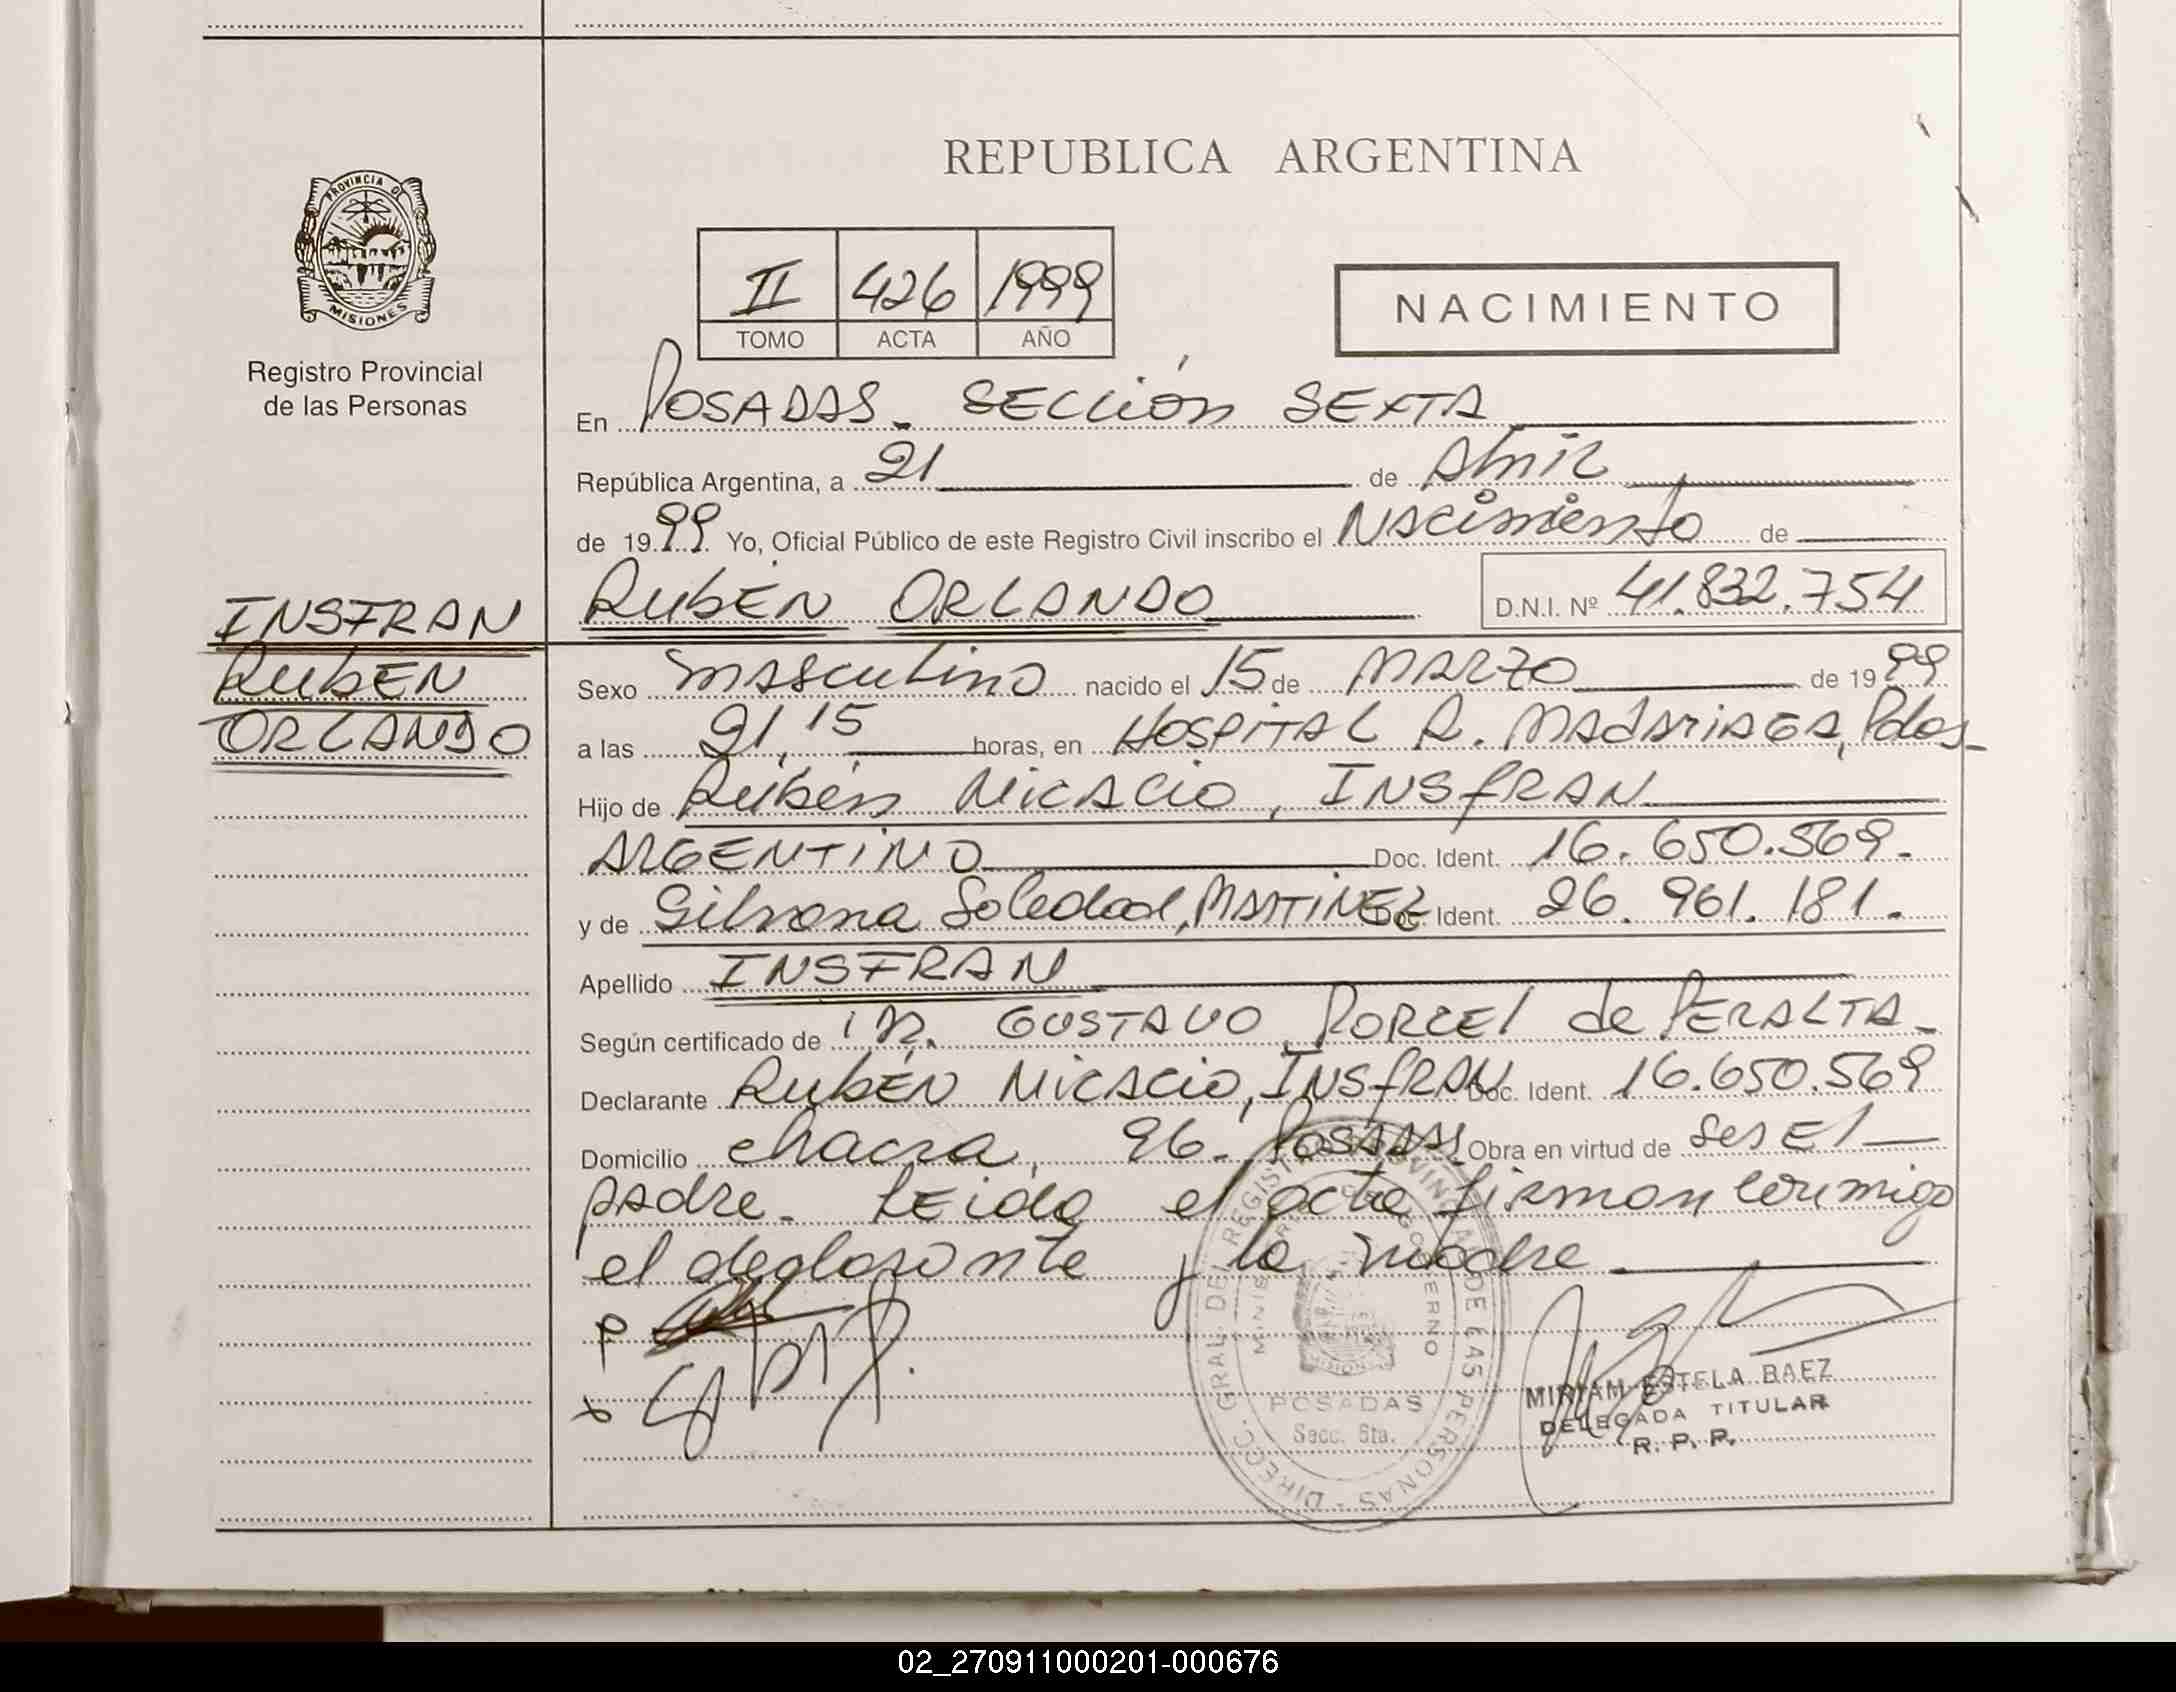 REPUBLICA ARGENTINA
PROVINCIA DE
MISIONES
Registro Provincial
de las Personas
II 426 1999
TOMO ACTA AÑO
NACIMIENTO
En POSADAS - SECCIÓN SEXTA
República Argentina, a 21 de Abril
de 1999 Yo, Oficial Público de este Registro Civil inscribo el Nacimiento de
RUBÉN ORLANDO D.N.I. Nº 41.832.754
INSFRAN
RUBEN
ORLANDO
Sexo masculino nacido el 15 de MARZO de 1999
a las 21,15 horas, en HOSPITAL R. MADARIAGA, Pdas-
Hijo de Rubén Nicacio, INSFRAN
ARGENTINO Doc. Ident. 16.650.569.
y de Silvana Soledad, MARTINEZ Doc. Ident. 26.961.181.
Apellido INSFRAN
Según certificado de DR. GUSTAVO PORCEL de PERALTA-
Declarante RUBÉN NICACIO, INSFRAN Doc. Ident. 16.650.569
Domicilio chacra, 96. POSADAS Obra en virtud de ser El
padre. Leida el acta firman conmigo
el declarante y la madre
DIRECC. GRAL. DEL REGISTRO PROVINCIAL DE LAS PERSONAS
MINISTERIO DE GOBIERNO
POSADAS
Secc. 6ta.
MIRIAM ESTELA BAEZ
DELEGADA TITULAR
R. P. P.
02_270911000201-000676